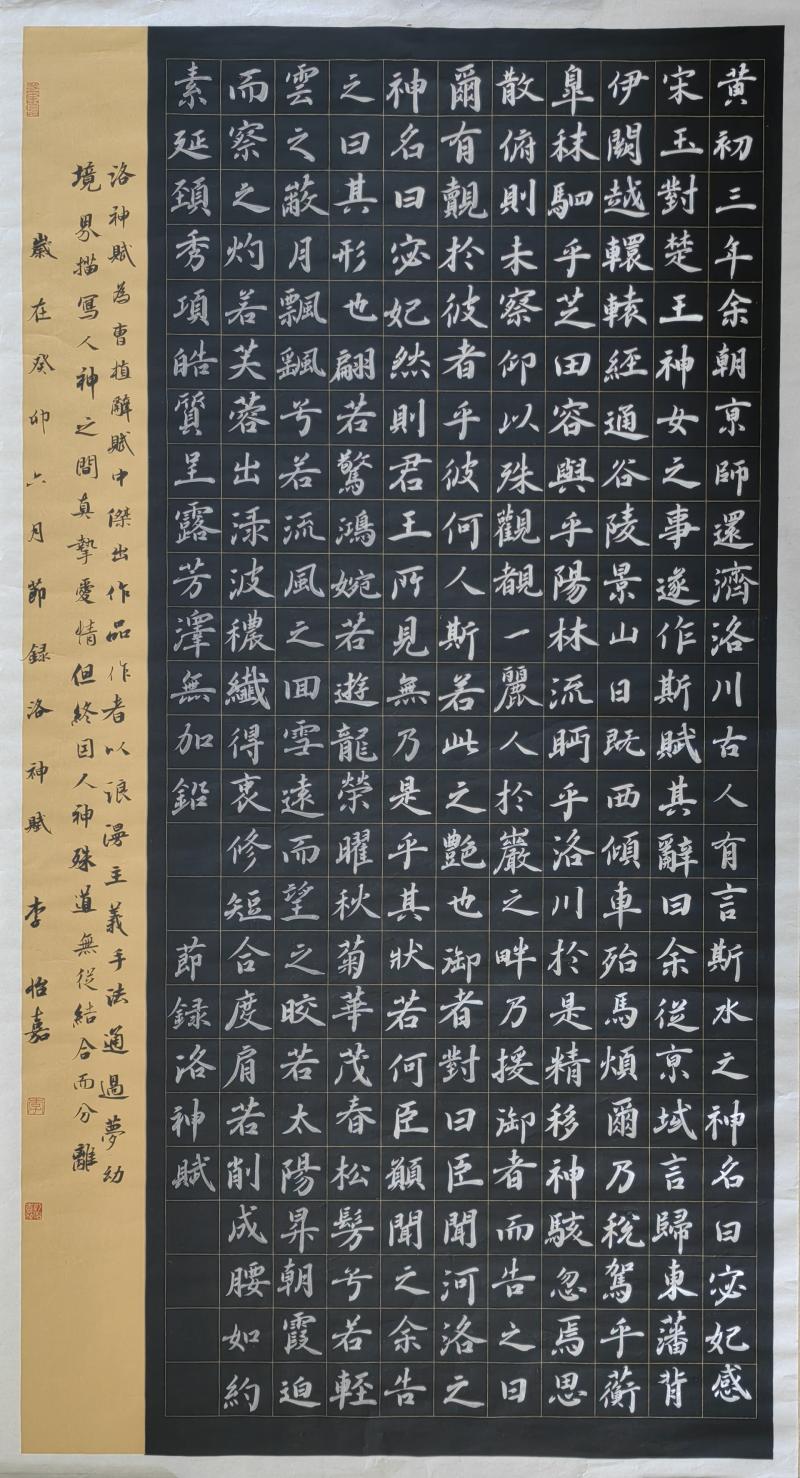 黄初三年余朝亰師還濟洛川古人有言斯水之神名曰宓妃感
宋玉對楚王神女之事遂作斯賦其辭曰余從亰域言歸東藩背
伊闕越轘轅經通谷陵景山日既西傾車殆馬煩爾乃税駕乎蘅
臯秣駟乎芝田容與乎陽林流眄乎洛川於是精移神駭忽焉思
散俯則未察仰以殊觀覩一麗人於巖之畔乃援御者而告之曰
爾有覿於彼者乎彼何人斯若此之艷也御者對曰臣聞河洛之
神名曰宓妃然則君王所見無乃是乎其狀若何臣顚聞之余告
之曰其形也翩若驚鴻婉若遊龍榮曜秋菊華茂春松髣兮若輕
雲之蔽月飄飖兮若流風之回雪遠而望之皎若太陽昇朝霞迫
而察之灼若芙蓉出渌波穠纖得衷修短合度肩若削成腰如約
素延頸秀項皓質呈露芳澤無加鉛 節録洛神賦
洛神賦為曹植辭賦中傑出作品作者以浪漫主義手法通過夢幻
境界描寫人神之間真摯愛情但終因人神殊道無從結合而分離
歲在癸卯六月節録洛神賦 李怡嘉